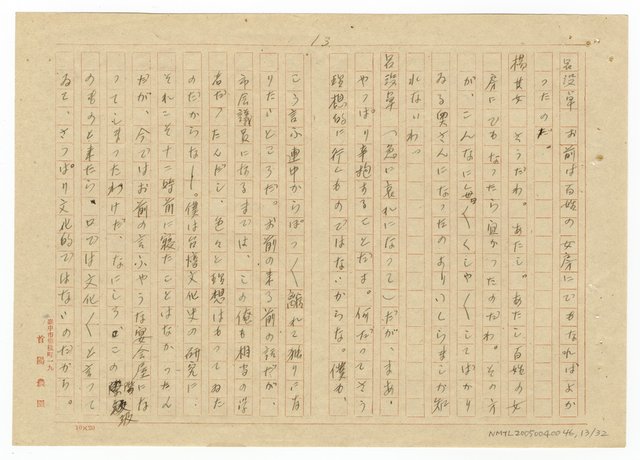 13
呂漢卓　お前は百姓の女房にでもなればよか
つたのだ。
楊女女　さうだわ。あたし。あたし百姓の女
房にでもなつたら宜かつたのだわ。その方
が、こんなに毎くくしやくしやしてばかり
ゐる奥さんになつたのよりいゝしらましか知
れないわ。
呂漢卓（急に哀れになつて）だが、まあ、
やつぱり辛抱することだよ。何だつてさう
理想的に行くものではないからな。僕も、
こう言ふ連中からぽつ〳〵離れて独りにな
りたいところだ。お前の来る前の話だが、
市会議員になるまでは、この俺も相当の学
者だつたんだし、色々と理想はもつてゐた
のだからな―。僕は台湾文化史の研究に、
それこそ十二時前に寝たことはなかつたん
だが、今ではお前の言ふやうな宴会屋にな
つてしまつたわけだ、なにしろ、この
のものと来たら、口では文化〳〵と云つて
ゐて、さつぱり文化的ではないのだから。
臺中市梅枝町一九
首陽農園
10×20
NMTL20050040046, 13/32